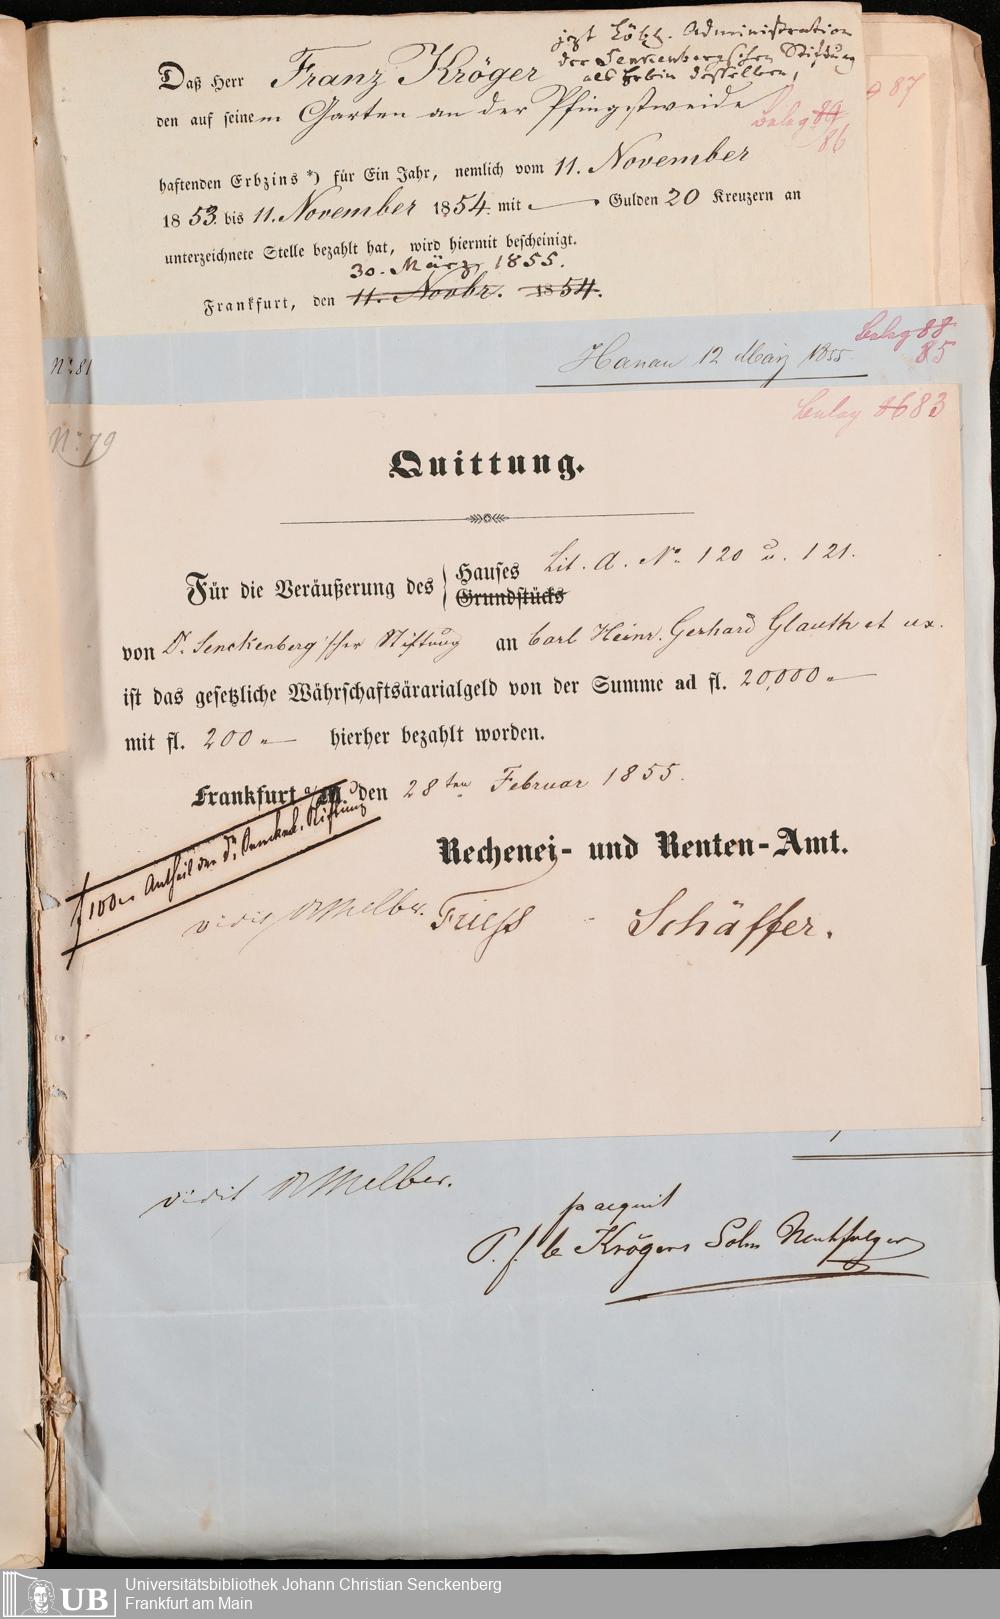 jezt Löbl. Administration
der Senckenbergschen Stiftung
als Erbin desselben,
Daß Herr Franz Kröger
den auf seinem Garten an der Pfingstweide
87
Beleg 89
86
haftenden Erbzins *) für Ein Jahr, nemlich vom 11. November
1853. bis 11. November 1854. mit — Gulden 20 Kreuzern an
unterzeichnete Stelle bezahlt hat, wird hiermit bescheinigt.
30. März 1855.
Frankfurt, den 11. Novbr. 1854.
Beleg 88
85
No. 81
Hanau 12 März 1855.
Beleg 86 83
No. 79
Quittung.
Für die Veräußerung des Hauses Lit. A. No. 120 u. 121.
Grundstücks
von Dr. Senckenberg'scher Stiftung an Carl Heinr. Gerhard Glauth et ux.
ist das gesetzliche Währschaftsärarialgeld von der Summe ad fl. 20,000 „—
mit fl. 200 „— hierher bezahlt worden.
Frankfurt a/M. den 28ten Februar 1855.
f 100 „ Antheil der Dr. Senckenb. Stiftung
Rechenei- und Renten-Amt.
vidit Dr Melber. Schäffer.
vidit Dr Melber.
pr acquit
Krögers Sohn Nachfolger
UB Universitätsbibliothek Johann Christian Senckenberg
Frankfurt am Main